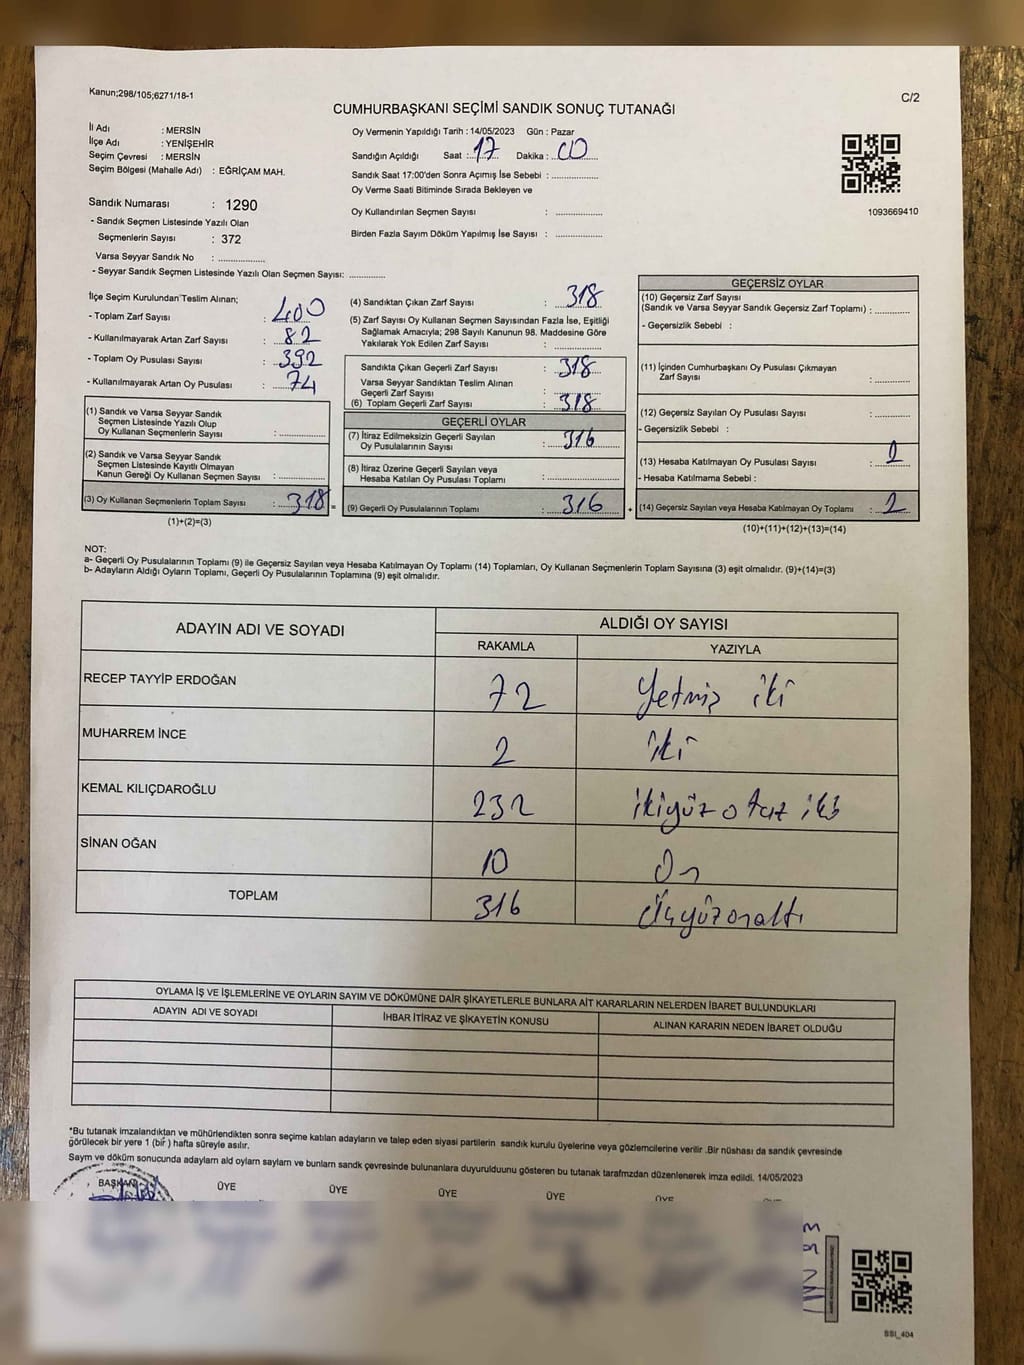 Kanun;298/105;6271/18-1
C/2
CUMHURBAŞKANI SEÇİMİ SANDIK SONUÇ TUTANAĞI
İl Adı : MERSİN
İlçe Adı : YENİŞEHİR
Seçim Çevresi : MERSİN
Seçim Bölgesi (Mahalle Adı) : EĞRİÇAM MAH.
Sandık Numarası : 1290
- Sandık Seçmen Listesinde Yazılı Olan
Seçmenlerin Sayısı : 372
Varsa Seyyar Sandık No : ..................
- Seyyar Sandık Seçmen Listesinde Yazılı Olan Seçmen Sayısı: .............
Oy Vermenin Yapıldığı Tarih : 14/05/2023 Gün : Pazar
Sandığın Açıldığı Saat : 17 Dakika : 00
Sandık Saat 17:00'den Sonra Açımış İse Sebebi : ..................
Oy Verme Saati Bitiminde Sırada Bekleyen ve
Oy Kullandırılan Seçmen Sayısı : ..................
Birden Fazla Sayım Döküm Yapılmış İse Sayısı : ..................
1093669410
İlçe Seçim Kurulundan Teslim Alınan;
- Toplam Zarf Sayısı : 400
- Kullanılmayarak Artan Zarf Sayısı : 82
- Toplam Oy Pusulası Sayısı : 392
- Kullanılmayarak Artan Oy Pusulası : 74
(1) Sandık ve Varsa Seyyar Sandık
Seçmen Listesinde Yazılı Olup
Oy Kullanan Seçmenlerin Sayısı : ..................
(2) Sandık ve Varsa Seyyar Sandık
Seçmen Listesinde Kayıtlı Olmayan
Kanun Gereği Oy Kullanan Seçmen Sayısı : ..................
(3) Oy Kullanan Seçmenlerin Toplam Sayısı : 318 =
(1)+(2)=(3)
(4) Sandıktan Çıkan Zarf Sayısı : 318
(5) Zarf Sayısı Oy Kullanan Seçmen Sayısından Fazla İse, Eşitliği
Sağlamak Amacıyla; 298 Sayılı Kanunun 98. Maddesine Göre
Yakılarak Yok Edilen Zarf Sayısı : ..................
Sandıkta Çıkan Geçerli Zarf Sayısı : 318
Varsa Seyyar Sandıktan Teslim Alınan
Geçerli Zarf Sayısı : ..................
(6) Toplam Geçerli Zarf Sayısı : 318
GEÇERLİ OYLAR
(7) İtiraz Edilmeksizin Geçerli Sayılan
Oy Pusulalarının Sayısı : 316
(8) İtiraz Üzerine Geçerli Sayılan veya
Hesaba Katılan Oy Pusulası Toplamı : ..................
(9) Geçerli Oy Pusulalarının Toplamı : 316 +
GEÇERSİZ OYLAR
(10) Geçersiz Zarf Sayısı
(Sandık ve Varsa Seyyar Sandık Geçersiz Zarf Toplamı) : .............
- Geçersizlik Sebebi :
(11) İçinden Cumhurbaşkanı Oy Pusulası Çıkmayan
Zarf Sayısı : .............
(12) Geçersiz Sayılan Oy Pusulası Sayısı : .............
- Geçersizlik Sebebi :
(13) Hesaba Katılmayan Oy Pusulası Sayısı : 2
- Hesaba Katılmama Sebebi :
(14) Geçersiz Sayılan veya Hesaba Katılmayan Oy Toplamı : 2
(10)+(11)+(12)+(13)=(14)
NOT:
a- Geçerli Oy Pusulalarının Toplamı (9) ile Geçersiz Sayılan veya Hesaba Katılmayan Oy Toplamı (14) Toplamları, Oy Kullanan Seçmenlerin Toplam Sayısına (3) eşit olmalıdır. (9)+(14)=(3)
b- Adayların Aldığı Oyların Toplamı, Geçerli Oy Pusulalarının Toplamına (9) eşit olmalıdır.
ADAYIN ADI VE SOYADI ALDIĞI OY SAYISI
RAKAMLA YAZIYLA
RECEP TAYYİP ERDOĞAN 72 Yetmiş iki
MUHARREM İNCE 2 iki
KEMAL KILIÇDAROĞLU 232 ikiyüz otuz iki
SİNAN OĞAN 10 On
TOPLAM 316 Üçyüzonaltı
OYLAMA İŞ VE İŞLEMLERİNE VE OYLARIN SAYIM VE DÖKÜMÜNE DAİR ŞİKAYETLERLE BUNLARA AİT KARARLARIN NELERDEN İBARET BULUNDUKLARI
ADAYIN ADI VE SOYADI İHBAR İTİRAZ VE ŞİKAYETİN KONUSU ALINAN KARARIN NEDEN İBARET OLDUĞU
*Bu tutanak imzalandıktan ve mühürlendikten sonra seçime katılan adayların ve talep eden siyasi partilerin sandık kurulu üyelerine veya gözlemcilerine verilir .Bir nüshası da sandık çevresinde
görülecek bir yere 1 (bir ) hafta süreyle asılır.
Saym ve döküm sonucunda adaylarn ald oylarn saylarn ve bunlarn sandk çevresinde bulunanlara duyurulduunu gösteren bu tutanak tarafmzdan düzenlenerek imza edildi. 14/05/2023
BAŞKAN ÜYE ÜYE ÜYE ÜYE ÜYE
BSI_404